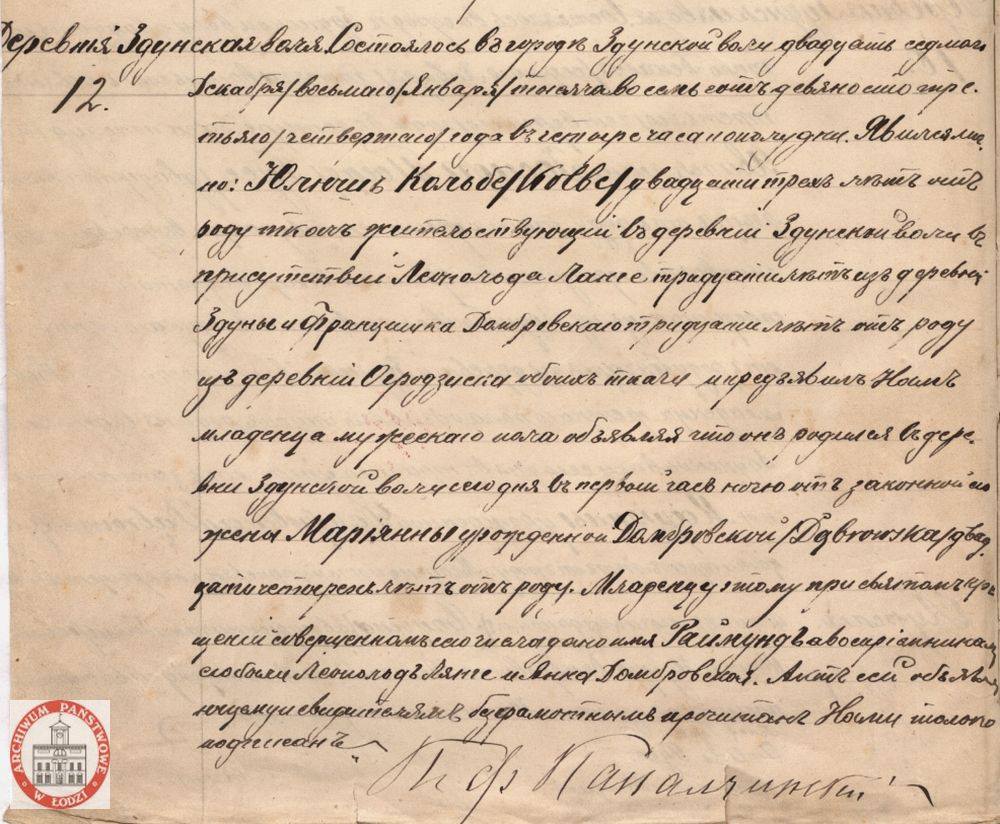 Деревня Здунская воля. Состоялось въ городѣ Здунской воли двадцать седмаго
12.
Декабря/восьмаго/Января/тысяча восемь сотъ девяносто тре-
тьяго/четвертаго/года въ четыре часа пополудни. Явился лич-
но: Юліюшъ Кольбе/Kolbe/двадцати трехъ лѣтъ отъ
роду ткачъ жительствующій въ деревнѣ Здунской воли въ
присутствіи Леопольда Ланге тридцати лѣтъ изъ деревни
Здуны и Францишка Домбровскаго тридцати лѣтъ отъ роду
изъ деревни Огродзиска обоихъ ткачи и предъявилъ Намъ
младенца мужескаго пола объявляя что онъ родился въ дере-
вни Здунской воли сегодня въ первый часъ ночью отъ законной его
жены Маріянны урожденной Домбровской/Dąbrowska/двад-
цати четырехъ лѣтъ отъ роду. Младенцу этому при святомъ кре-
щеніи совершенномъ сего числа дано имя Раймундъ а воспріемниками
его были Леопольдъ Лянге и Анна Домбровская. Актъ сей объявля-
ющему и свидѣтелямъ безграмотнымъ прочитанъ Нами только
подписанъ
ARCHIWUM PAŃSTWOWE
W ŁODZI